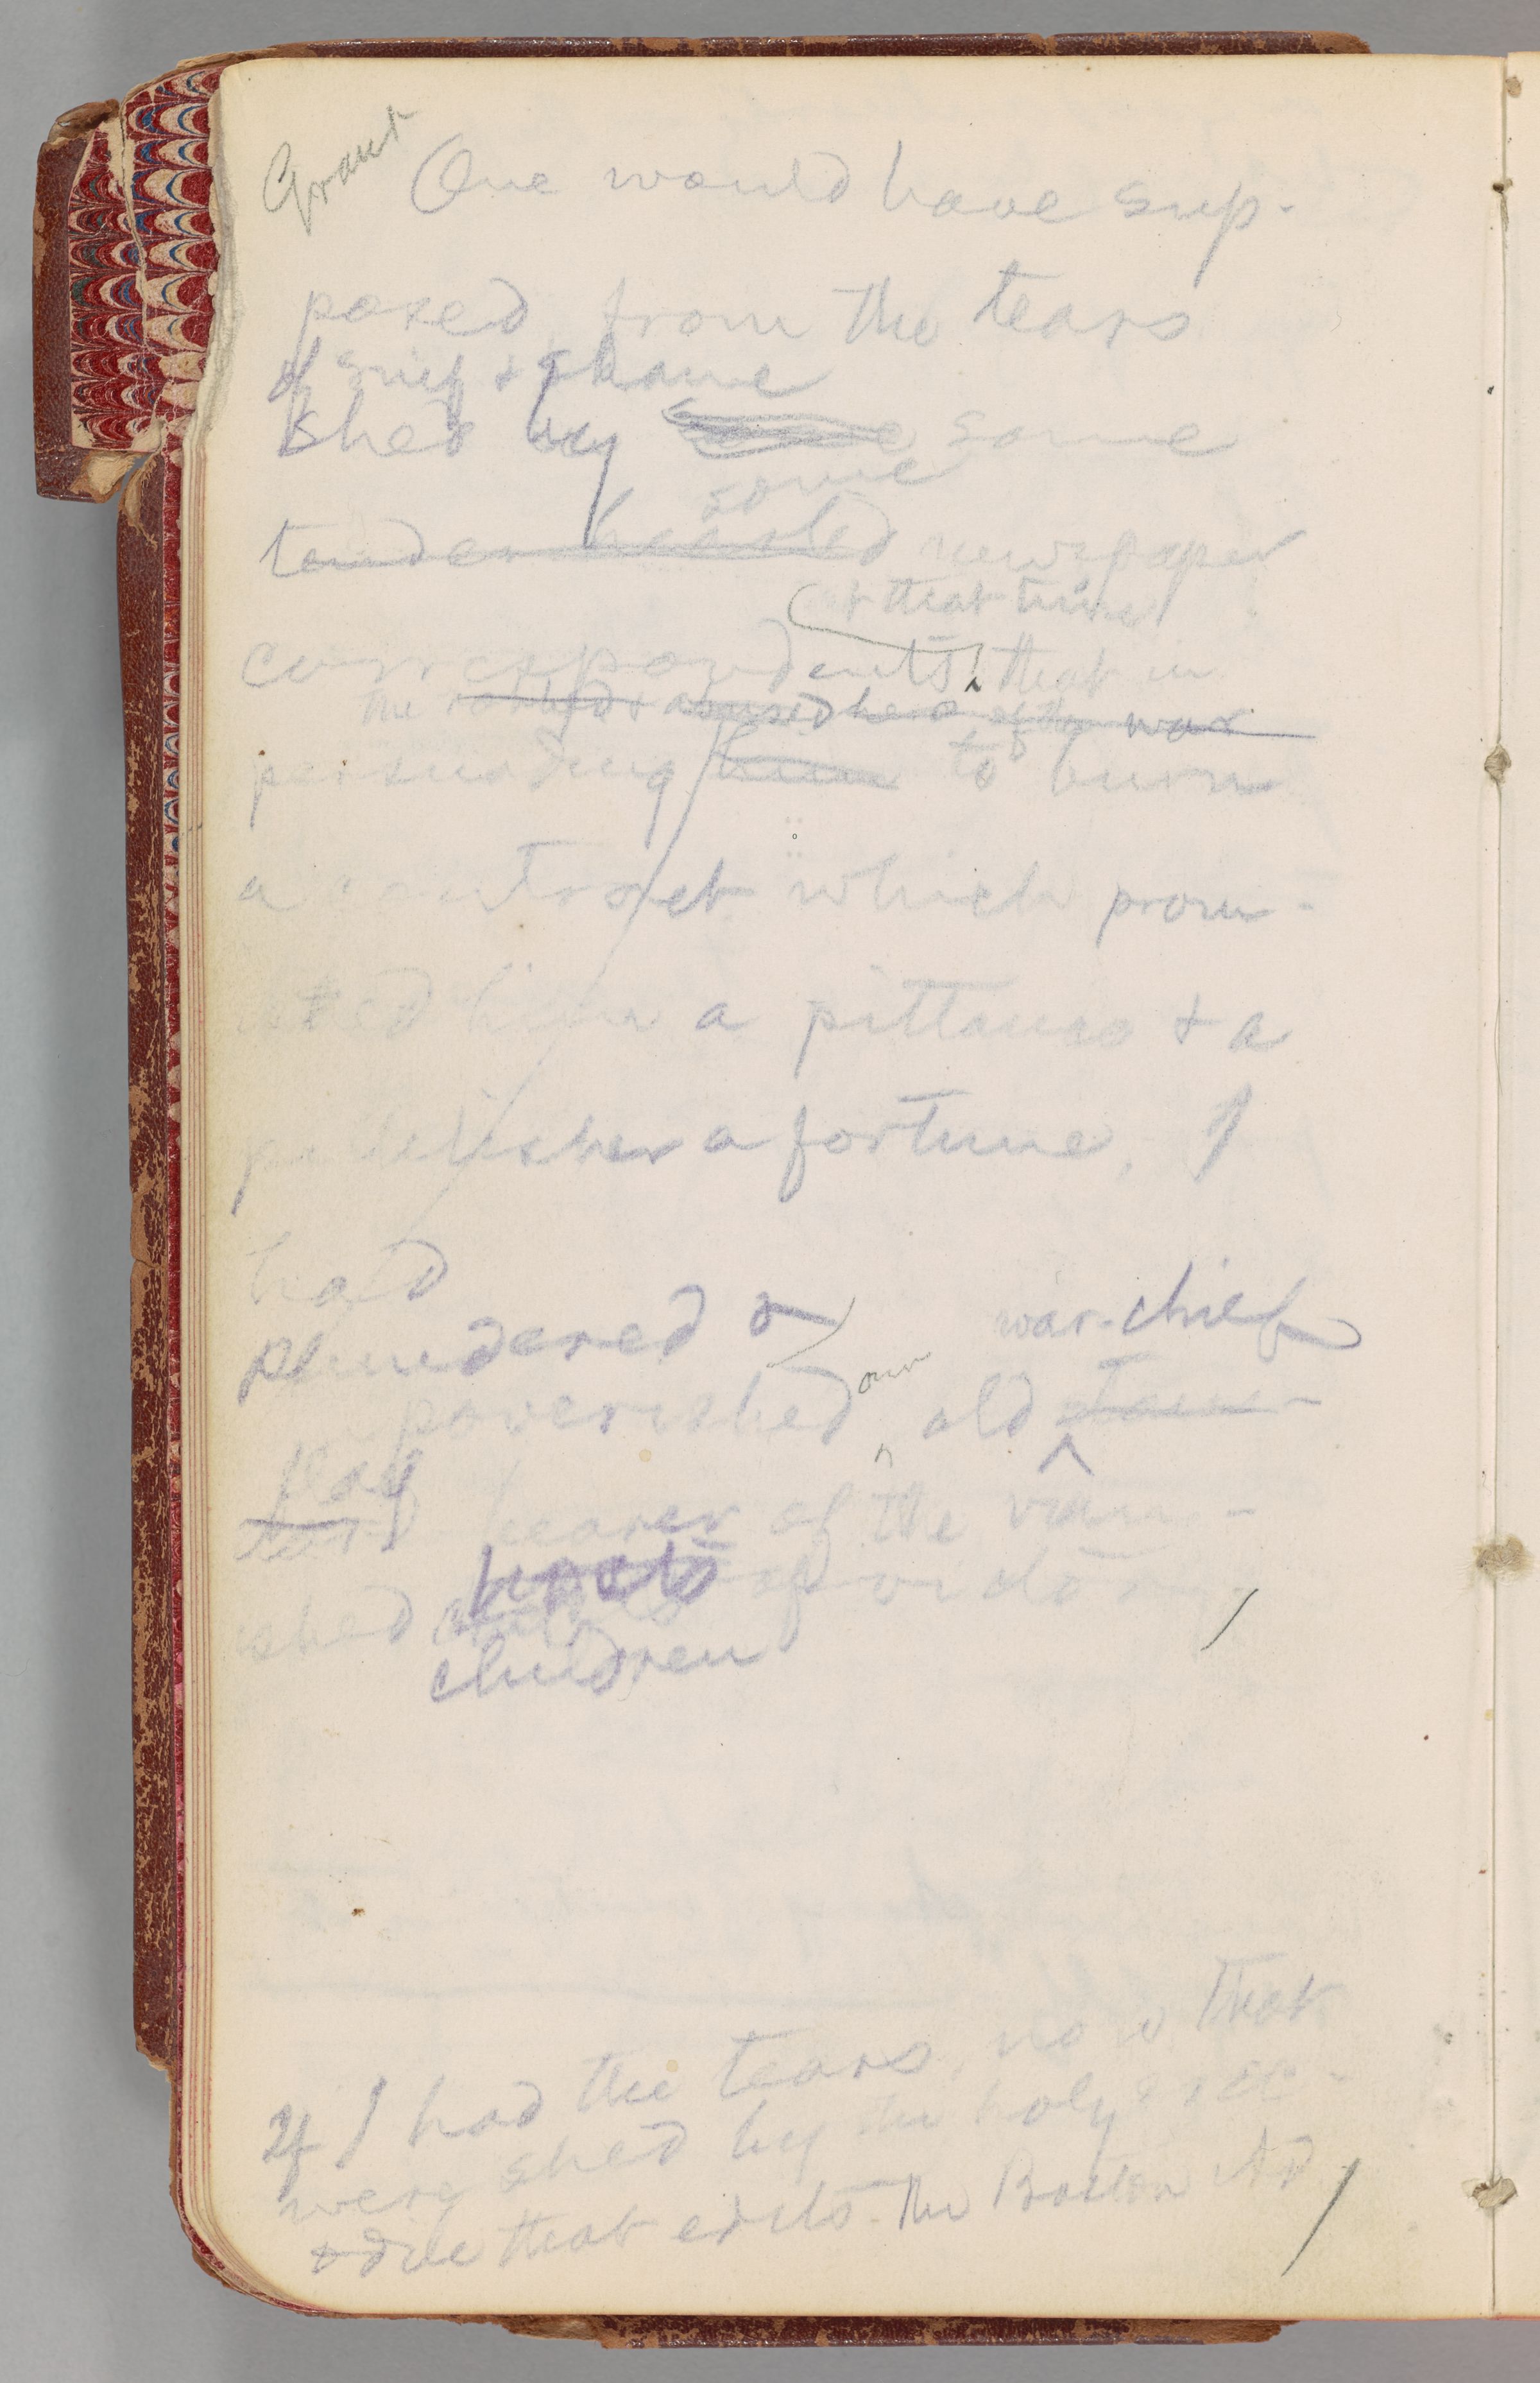 Grant
One would have sup-
posed from the tears
of grief & shame
shed by some
some
tender hearted newspaper
& that time
correspondents that in
the robbed & abused hero of the war
persuading him to burn
a contract which prom-
ised him a pittance & a
publisher a fortune, I
had
plundered & war-chief
poverished our old
flag
bearer of the van-
shed of victory
children
If I had the tears, now that
were shed by the holy
& that edits the Boston Ad